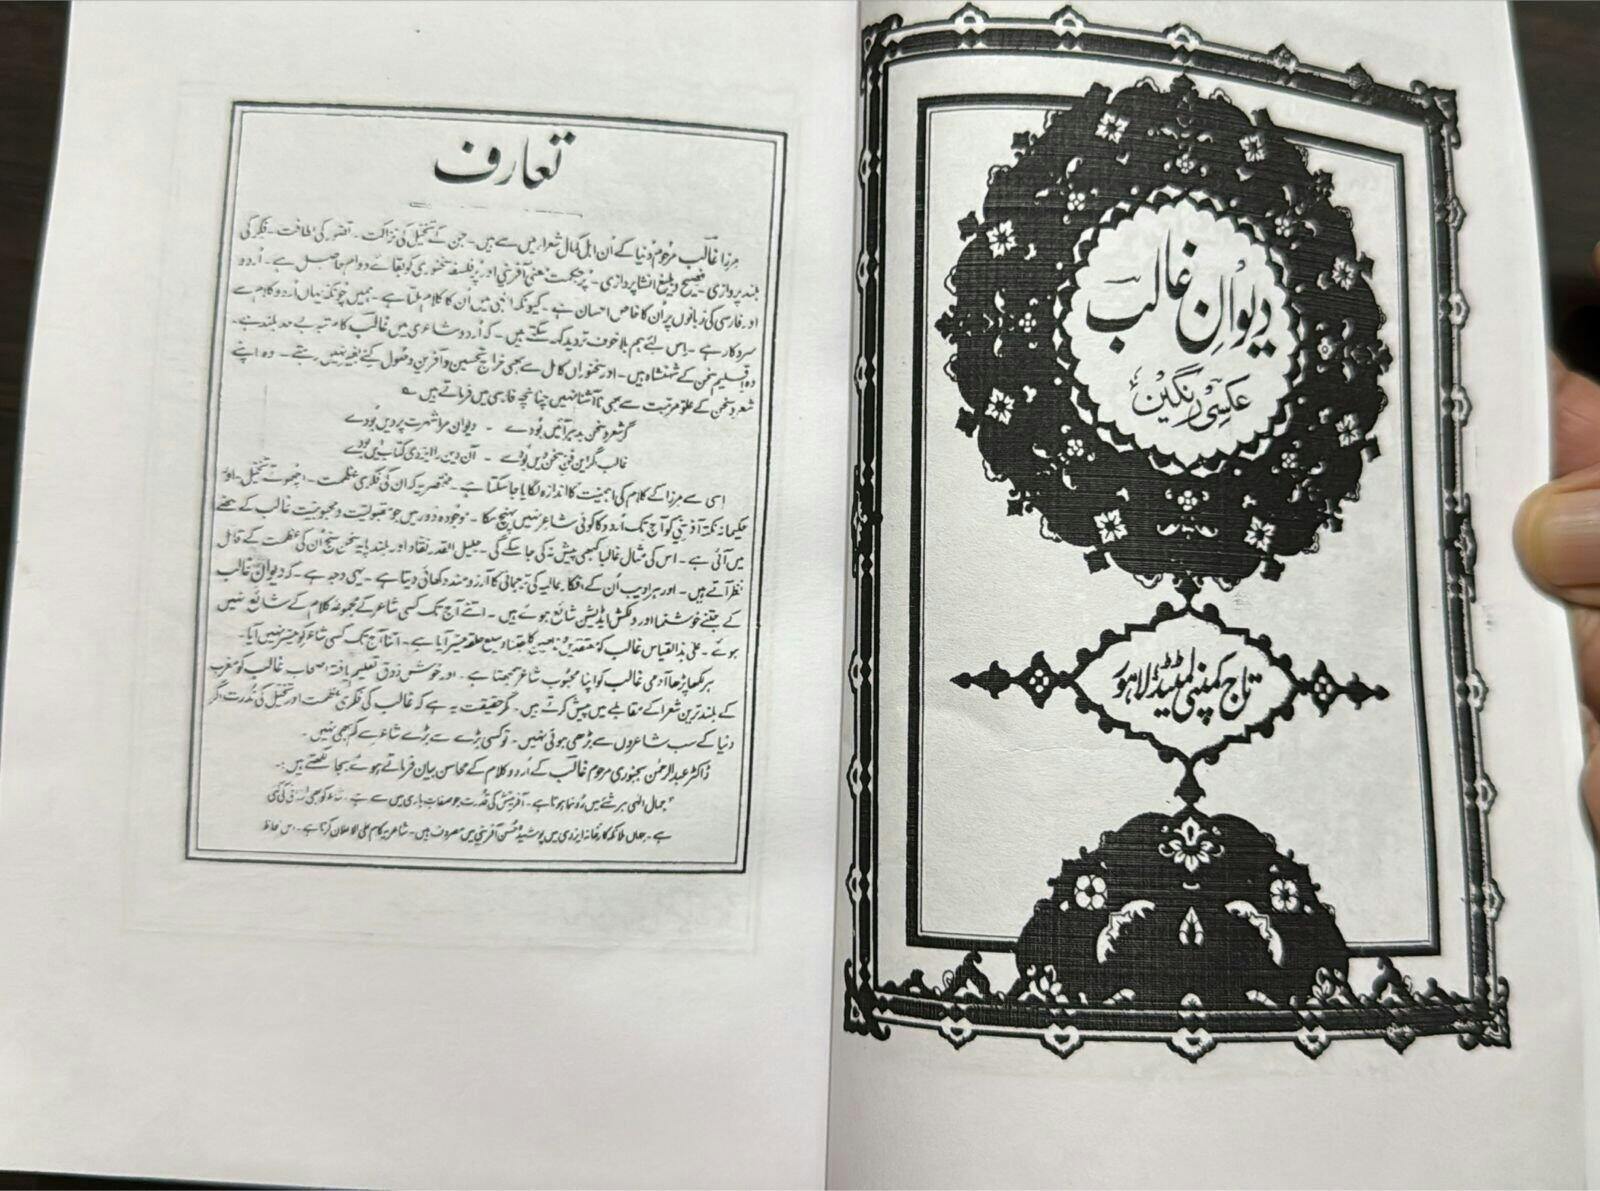 دیوانِ غالب
عکسی رنگین
تاج کمپنی لمیٹڈ لاہور
تعارف
مرزا غالب مرحوم دنیا کے اُن اہل کمال شعراء میں سے ہیں۔ جن کے تخیل کی نزاکت۔ تصور کی لطافت۔ فکر کی
بلند پروازی۔ فصیح و بلیغ انشا پردازی۔ پُر حکمت معنی آفرینی اور پُر فلسفہ سخنوری کو بقائے دوام حاصل ہے۔ اُردو
اور فارسی کی زبانوں پر اُن کا خاص احسان ہے۔ کیونکہ انہی میں ان کا کلام ملتا ہے۔ ہمیں چونکہ یہاں اُردو کلام سے
سروکار ہے۔ اس لئے ہم بلا خوف تردید کہہ سکتے ہیں۔ کہ اُردو شاعری میں غالب کا مرتبہ بے حد بلند ہے۔
وہ اقلیم سخن کے شہنشاہ ہیں۔ اور سخنوران کامل سے بھی خراج تحسین و آفرین وصول کئے بغیر نہیں رہتے۔ وہ اپنے
شعر و سخن کے علو مرتبت سے بھی ناآشنا نہیں چنانچہ فارسی میں فرماتے ہیں ؎
گر شعر و سخن بدہر آئیں بُودے ۔ دیوان مرا شہرت پرویں بُودے
غالب گر ایں فن سخن دیں بُودے ۔ آں دیں را ایزدی کتاب ایں بودے
اسی سے مرزا کے کلام کی اہمیت کا اندازہ لگایا جا سکتا ہے۔ مختصر یہ کہ ان کی فکری عظمت۔ اچھوتے تخیل۔ اور
حکیمانہ نکتہ آفرینی کو آج تک اُردو کا کوئی شاعر نہیں پہنچ سکا۔ موجودہ دور میں جو مقبولیت و محبوبیت غالب کے حصے
میں آئی ہے۔ اس کی مثال غالبا کبھی پیش نہ کی جا سکے گی۔ جلیل القدر نقاد اور بلند پایہ سخن سنج اُن کی عظمت کے قائل
نظر آتے ہیں۔ اور ہر ادیب اُن کے افکار عالیہ کی ترجمانی کا آرزو مند دکھائی دیتا ہے۔ یہی وجہ ہے۔ کہ دیوان غالب
کے جتنے خوشنما اور دلکش ایڈیشن شائع ہوئے ہیں۔ اتنے آج تک کسی شاعر کے مجموعہ کلام کے شائع نہیں
ہوئے۔ علی ہذالقیاس غالب کو معتقدین و متبعین کا جتنا وسیع حلقہ میسر آیا ہے۔ اتنا آج تک کسی شاعر کو میسر نہیں آیا۔
ہر لکھا پڑھا آدمی غالب کو اپنا محبوب شاعر سمجھتا ہے۔ اور خوش ذوق تعلیم یافتہ اصحاب غالب کو مغرب
کے بلند ترین شعرا کے مقابلے میں پیش کرتے ہیں۔ گر حقیقت یہ ہے کہ غالب کی فکری عظمت اور تخیل کی ندرت اگر
دنیا کے سب شاعروں سے بڑھی ہوئی نہیں۔ تو کسی بڑے سے بڑے شاعر سے کم بھی نہیں۔
ڈاکٹر عبدالرحمٰن بجنوری مرحوم غالب کے اُردو کلام کے محاسن بیان فرماتے ہوئے بجا لکھتے ہیں:۔
"جمال الٰہی ہر شئے میں رُونما ہوتا ہے۔ آفرینش کی قدرت جو صفات باری میں سے ہے۔ شاعر کو بھی ارزانی کی گئی
ہے۔ جہاں ملائکہ کارخانہ ایزدی میں پوشیدہ حُسن آفرینی میں مصروف ہیں۔ شاعر یہ کام علی الاعلان کرتا ہے۔ اس لحاظ